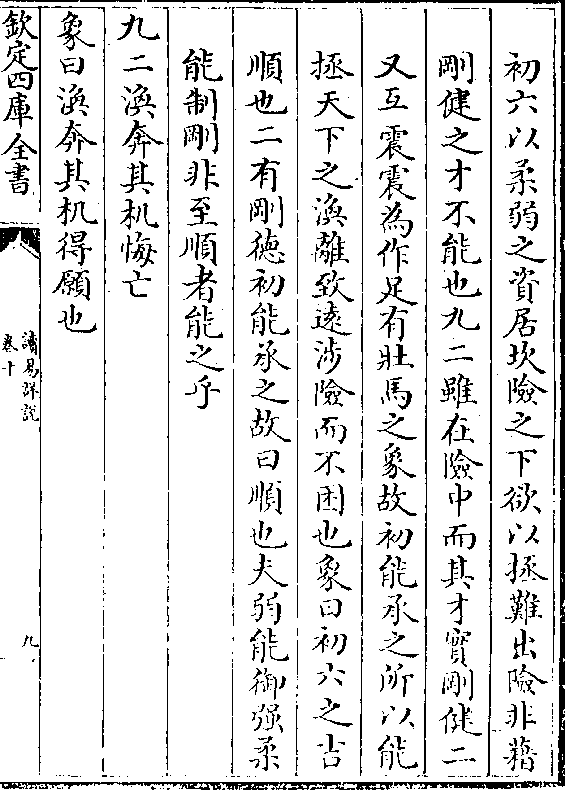 初六以柔弱之資居坎險之下欲以拯難出險非藉
剛健之才不能也九二雖在險中而其才實剛健二
又互震震為作足有壯馬之象故初能承之所以能
拯天下之渙離致遠涉險而不困也象曰初六之吉
順也二有剛德初能承之故曰順也夫弱能御强柔
能制剛非至順者能之乎
九二渙奔其机悔亡
象曰渙奔其机得願也
欽定四庫全書
讀易詳說
卷十
九